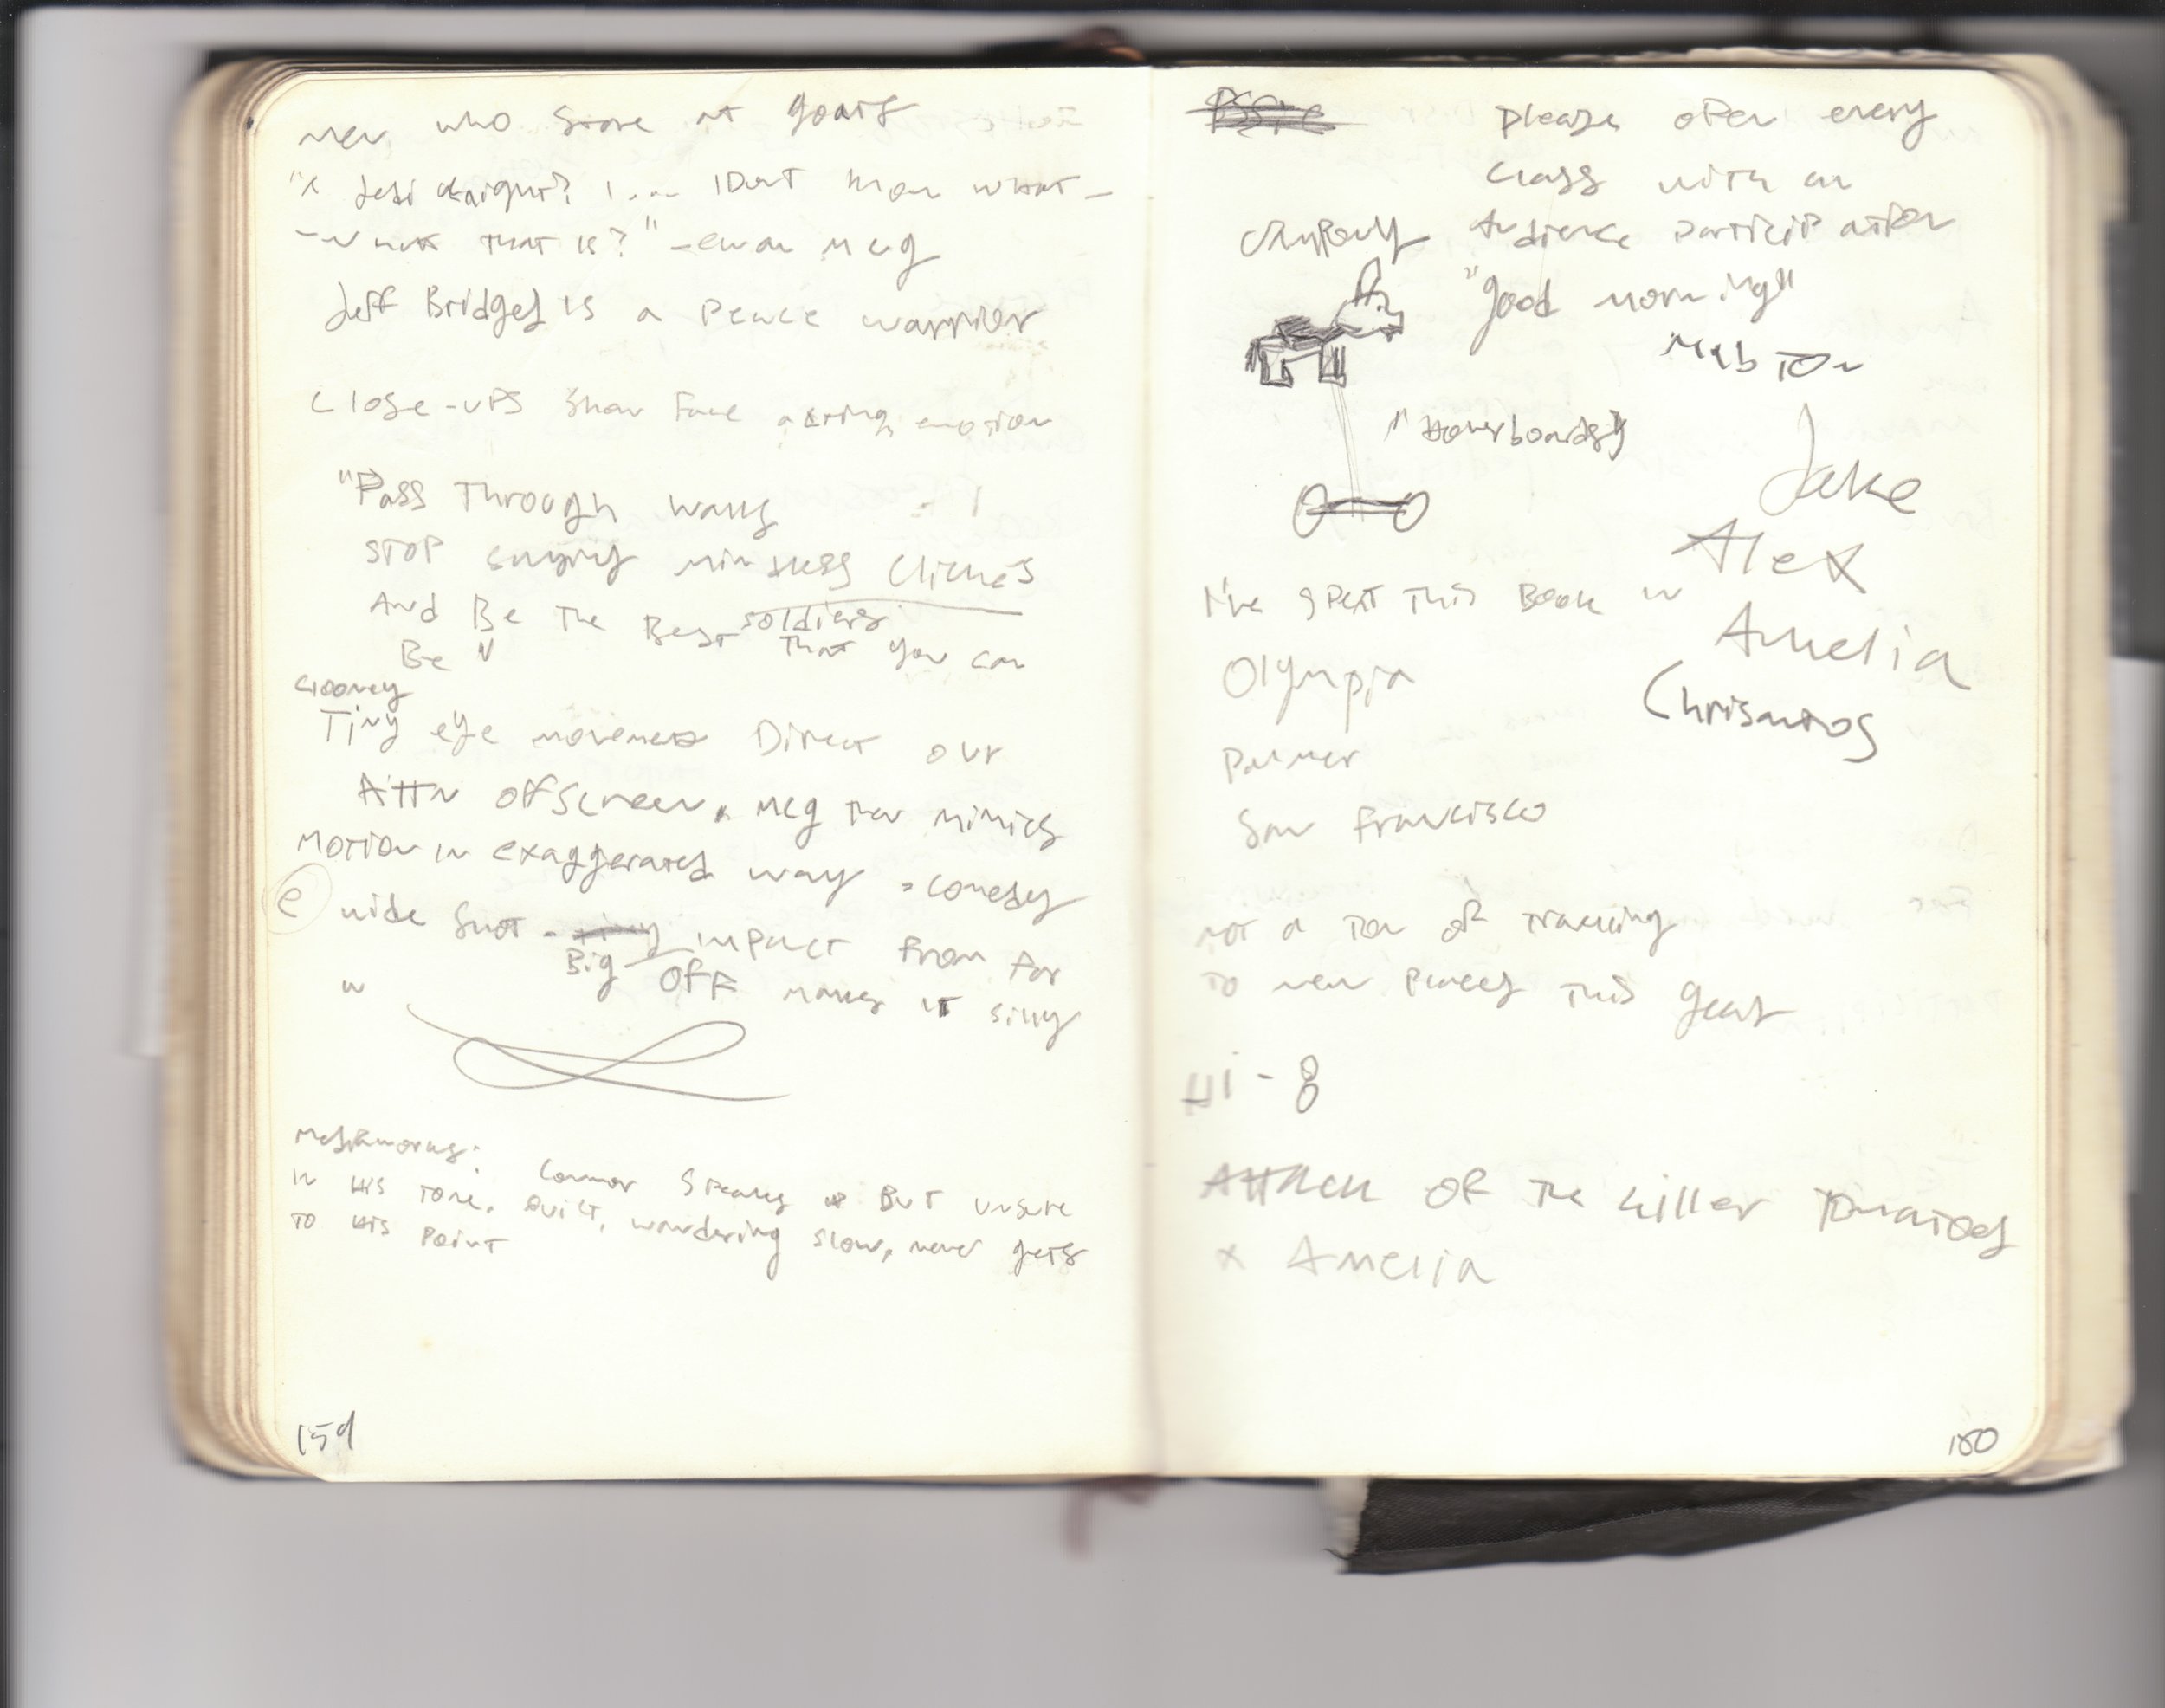 Men who stare at goats
"A Jedi Knight? I... I Don't know what -
- what that is?" - Ewan McG
Jeff Bridges is a Peace warrior
Close-ups show face acting, emotion
"Pass Through walls
STOP saying mindless Clichés
And Be The Best soldiers that you can
Be"
Clooney
Tiny eye movements Direct our
Attn offscreen. McG then mimics
motion in exaggerated way = comedy
wide shot - Big impact from far
off makes it silly
Connor Speaks But unsure
in his tone. Quiet, wandering slow, never gets
to his Point
159
Please open every
class with an
Audience participation
"good morning"
"Hoverboards"
Jake
Alex
Amelia
I've spent this Book in
Olympia
Palmer
San Francisco
not a ton of traveling
to new places this year
Hi-8
Attack of the killer Tomatoes
x Amelia
160